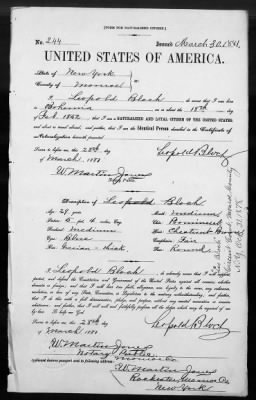 [FORM FOR NATURALIZED CITIZEN.]
No. 244
Issued March 30, 1881.
UNITED STATES OF AMERICA.
State of New York
County of Monroe
I, Leopold Bloch do swear that I was born
in Bohemia on or about the 18th day of
Feb 1852
that I am a NATURALIZED AND LOYAL CITIZEN OF THE UNITED STATES,
and about to travel abroad; and further, that I am the Identical Person described in the Certificate of
Naturalization herewith presented.
Sworn to before me this 28th day
of March, 1881
Leopold Bloch
W. Martin Jones
Notary Public
Description of Leopold Bloch
Age: 29 years
Mouth: medium
Stature: 5 feet 4 inches, Eng.
Chin:
Forehead: Medium
Hair: Chestnut
Eyes: Blue
Complexion: Fair
Nose:
Face: Round
I, Leopold Bloch do solemnly swear that I will support,
protect, and defend the Constitution and Government of the United States against all enemies, whether
domestic or foreign; and that I will bear true faith, allegiance, and loyalty to the same, any ordinance,
resolution, or law of any State, Convention, or Legislature to the contrary notwithstanding; and further,
that I do this with a full determination, pledge, and purpose, without any mental reservation or evasion
whatsoever; and further, that I will well and faithfully perform all the duties which may be required of me
by law: So help me God.
Sworn to before me this 28th day
of March 1881
Leopold Bloch
W. Martin Jones
Notary Public
Monroe Co
W. Martin Jones
Rochester, Monroe Co
New York